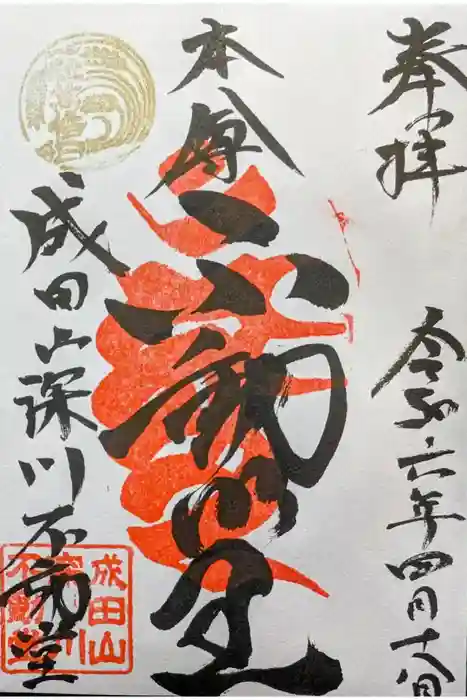 奉拝
令和六年四月十八日
本尊
不動明王
成田山深川不動堂
成田山